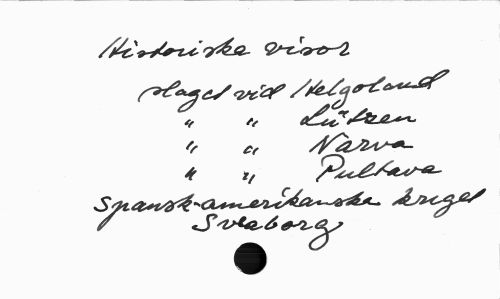 Historiska visor
slaget vid Helgoland
" " Lützen
" " Narva
" " Pultava
Spansk-amerikanska kriget
Sveaborg